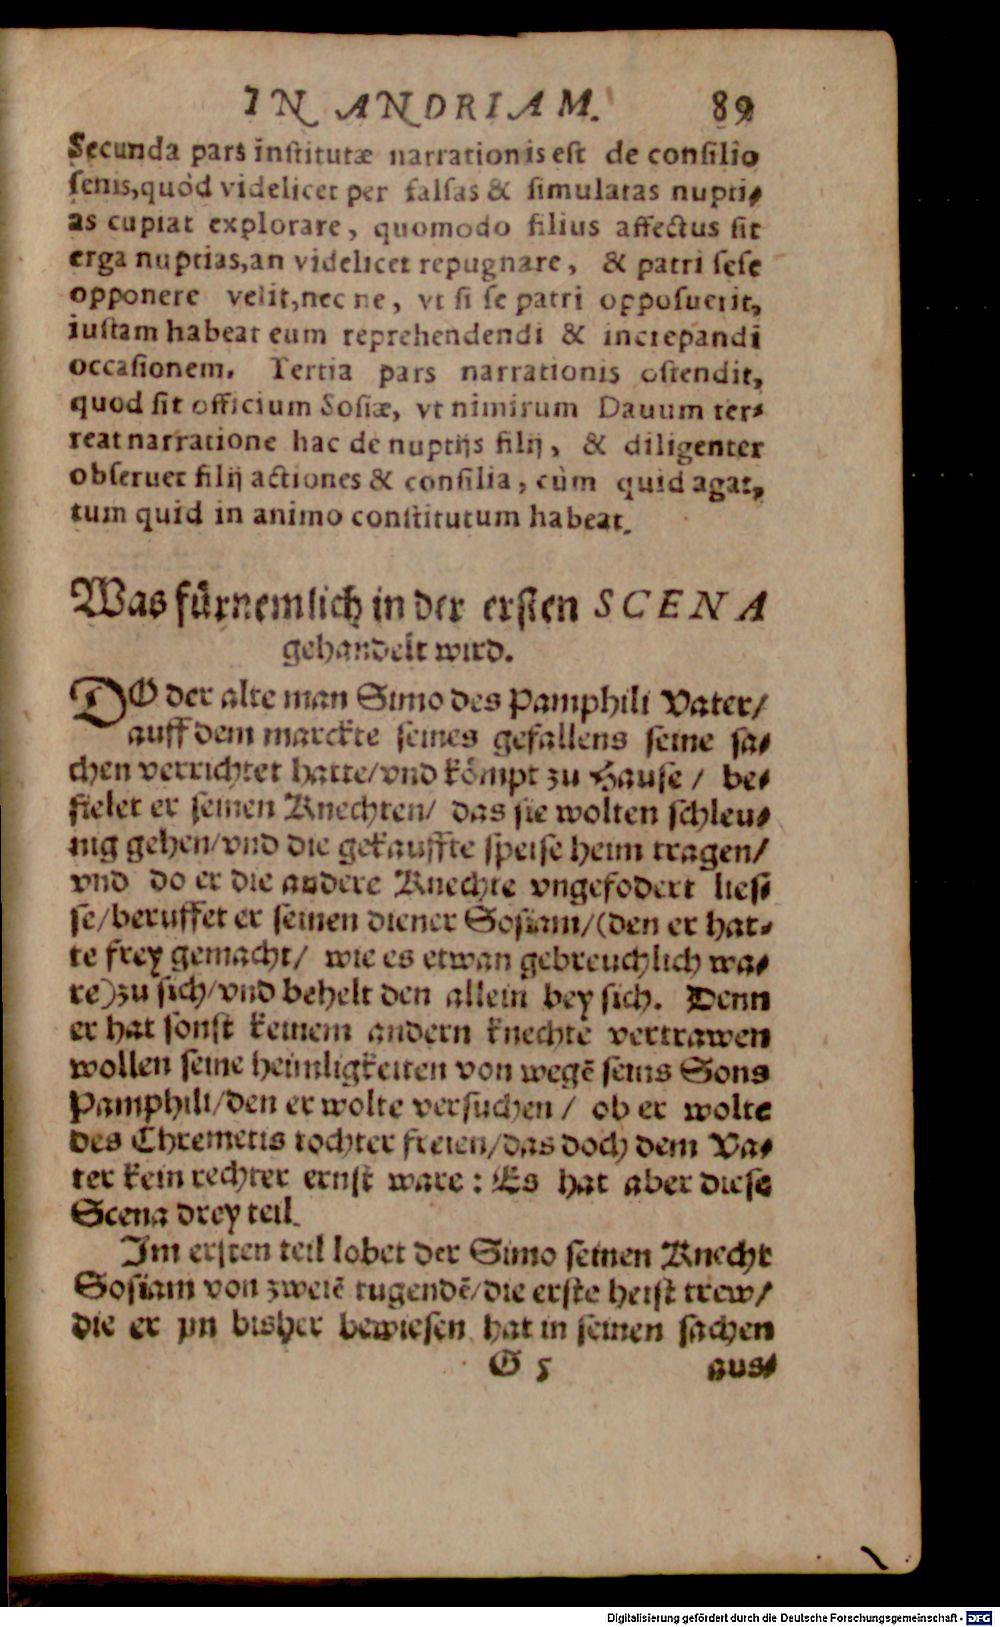 IN ANDRIAM. 89
Secunda pars institutæ narrationis est de consilio
senis, quòd videlicet per falsas & simulatas nupti-
as cupiat explorare, quomodo filius affectus sit
erga nuptias, an videlicet repugnare, & patri sese
opponere velit, nec ne, vt si se patri opposuerit,
iustam habeat eum reprehendendi & increpandi
occasionem. Tertia pars narrationis ostendit,
quod sit officium Sosiæ, vt nimirum Dauum ter-
reat narratione hac de nuptijs filij, & diligenter
obseruet filij actiones & consilia, cùm quid agat,
tum quid in animo constitutum habeat.
Was fürnemlich in der ersten SCENA
gehandelt wird.
DO der alte man Simo des Pamphili Vater/
auff dem marckte seines gefallens seine sa-
chen verrichtet hatte/vnd kömpt zu Hause / be-
fielet er seinen Knechten/ das sie wolten schleu-
nig gehen/vnd die gekauffte speise heim tragen/
vnd do er die andere Knechte vngefodert lies-
se/beruffet er seinen diener Sosiam/(den er hat-
te frey gemacht/ wie es etwan gebreuchlich wa-
re)zu sich/vnd behelt den allein bey sich. Denn
er hat sonst keinem andern knechte vertrawen
wollen seine heimligkeiten von wegē seins Sons
Pamphili/den er wolte versuchen / ob er wolte
des Chremetis tochter freien/das doch dem Va-
ter kein rechter ernst ware: Es hat aber diese
Scena drey teil.
Im ersten teil lobet der Simo seinen Knecht
Sosiam von zweiē tugendē/die erste heist trew/
die er jm bisher bewiesen hat in seinen sachen
G 5 aus-
Digitalisierung gefördert durch die Deutsche Forschungsgemeinschaft - DFG